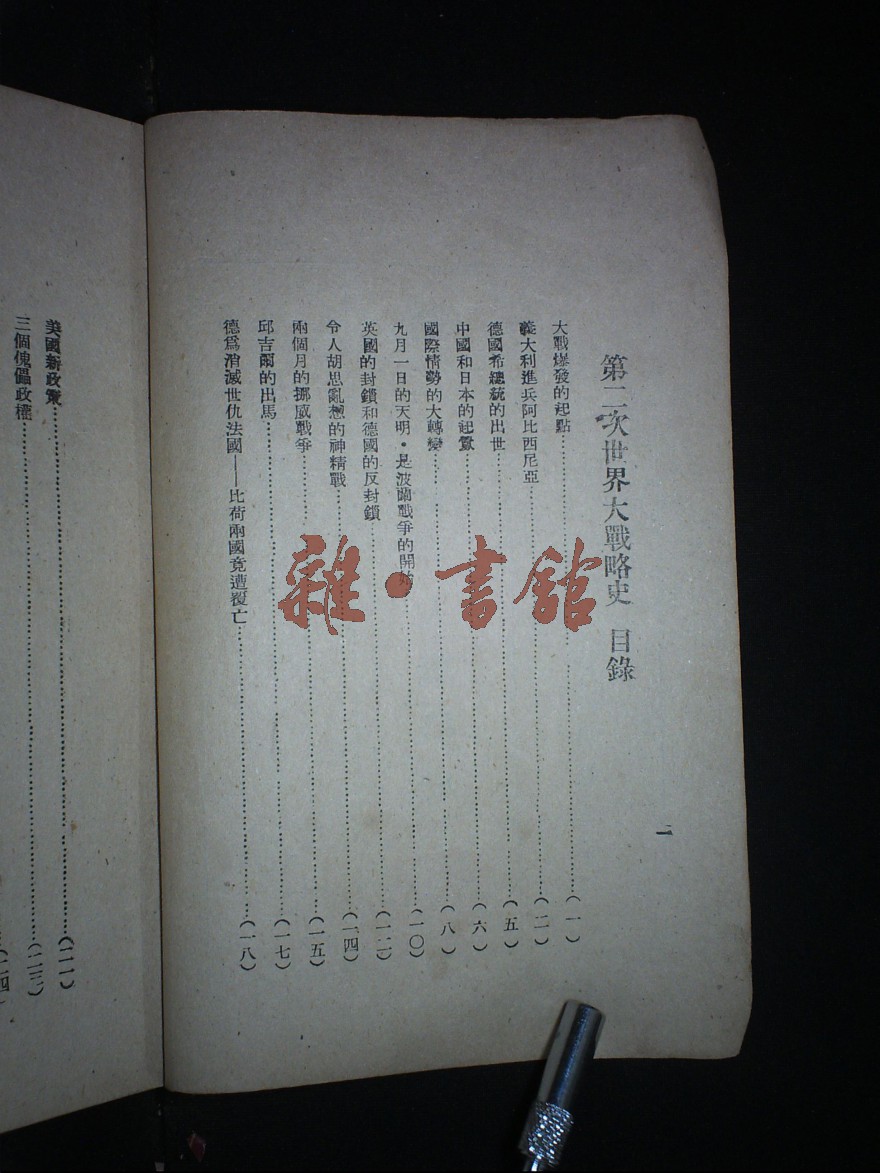 第二次世界大戰略史 目錄
大戰爆發的起點……(一)
義大利進兵阿比西尼亞……(二)
德國希總統的出世……(五)
中國和日本的起釁……(六)
國際情勢的大轉變……(八)
九月一日的天明·是波蘭戰爭的開始……(一〇)
英國的封鎖和德國的反封鎖……(一二)
令人胡思亂想的神精戰……(一四)
兩個月的挪威戰爭……(一五)
邱吉爾的出馬……(一七)
德爲消滅世仇法國——比荷兩國竟遭覆亡……(一八)
一
美國新政策……(二一)
三個傀儡政權……(二三)
雜·書館